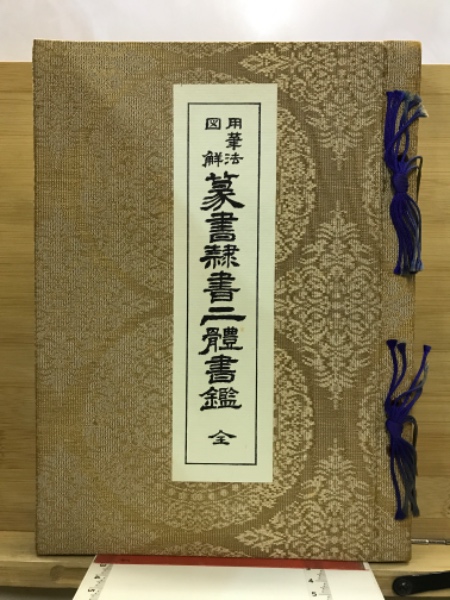 用筆法
図解
篆書隷書二體書鑑 全